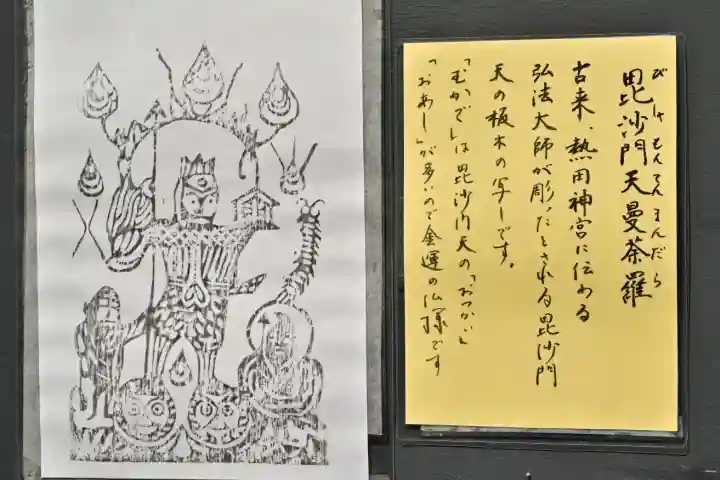 びしゃもんてんまんだら
毘沙門天曼荼羅
古来、熱田神宮に伝わる
弘法大師が彫ったとされる毘沙門
天の板木の写しです。
「むかで」は毘沙門天の「おつかい」
「おあし」が多いので金運の仏様です